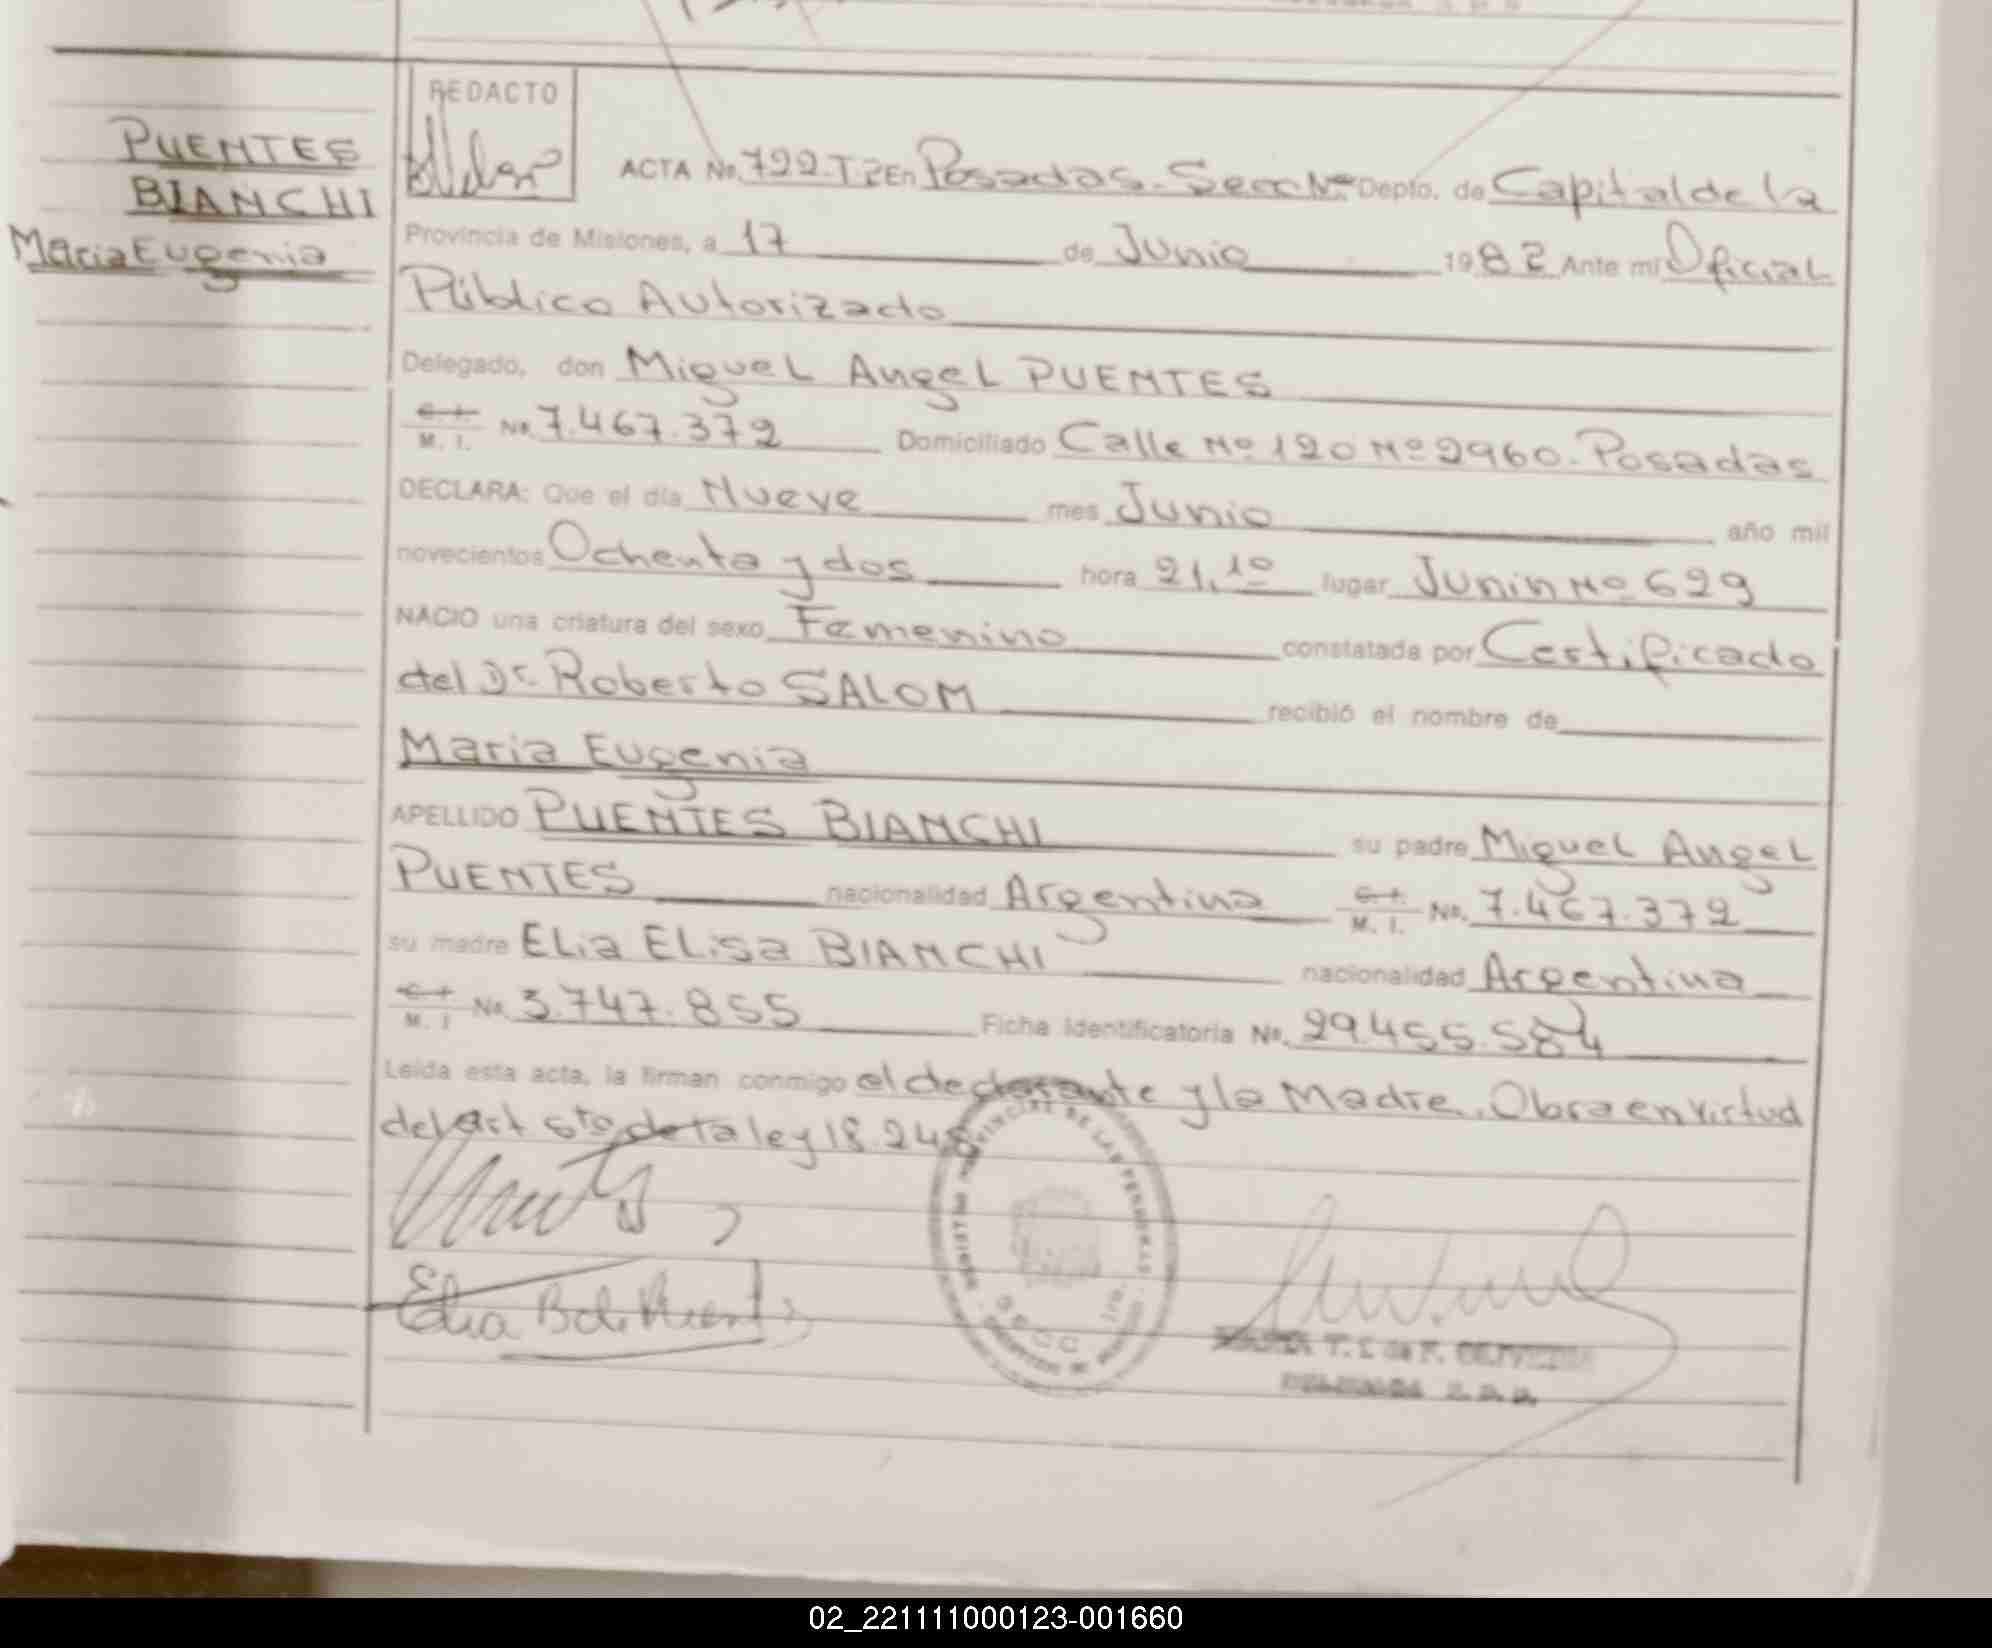 PUENTES
BIANCHI
Maria Eugenia
REDACTO
ACTA No. 722. T2 En Posadas. Secc. Nº Depto. de Capital de la
Provincia de Misiones, a 17 de Junio 1982 Ante mi Oficial
Público Autorizado
Delegado, don Miguel Angel PUENTES
C. I. M. I. No. 7.467.372 Domiciliado Calle Nº 120 Nº 2960. Posadas
DECLARA: Que el día Nueve mes Junio año mil
novecientos Ochenta y dos hora 21,10 lugar Junin Nº 629
NACIO una criatura del sexo Femenino constatada por Certificado
del Dr. Roberto SALOM recibió el nombre de
Maria Eugenia
APELLIDO PUENTES BIANCHI su padre Miguel Angel
PUENTES nacionalidad Argentina C. I. M. I. No. 7.467.372
su madre Elia Elisa BIANCHI nacionalidad Argentina
C. I. M. I. No. 3.747.855 Ficha identificatoria No. 29.455.584
Leída esta acta, la firman conmigo el declarante y la Madre. Obra en virtud
del art 5to de la ley 18.248
Elia B de Puentes
02_221111000123-001660